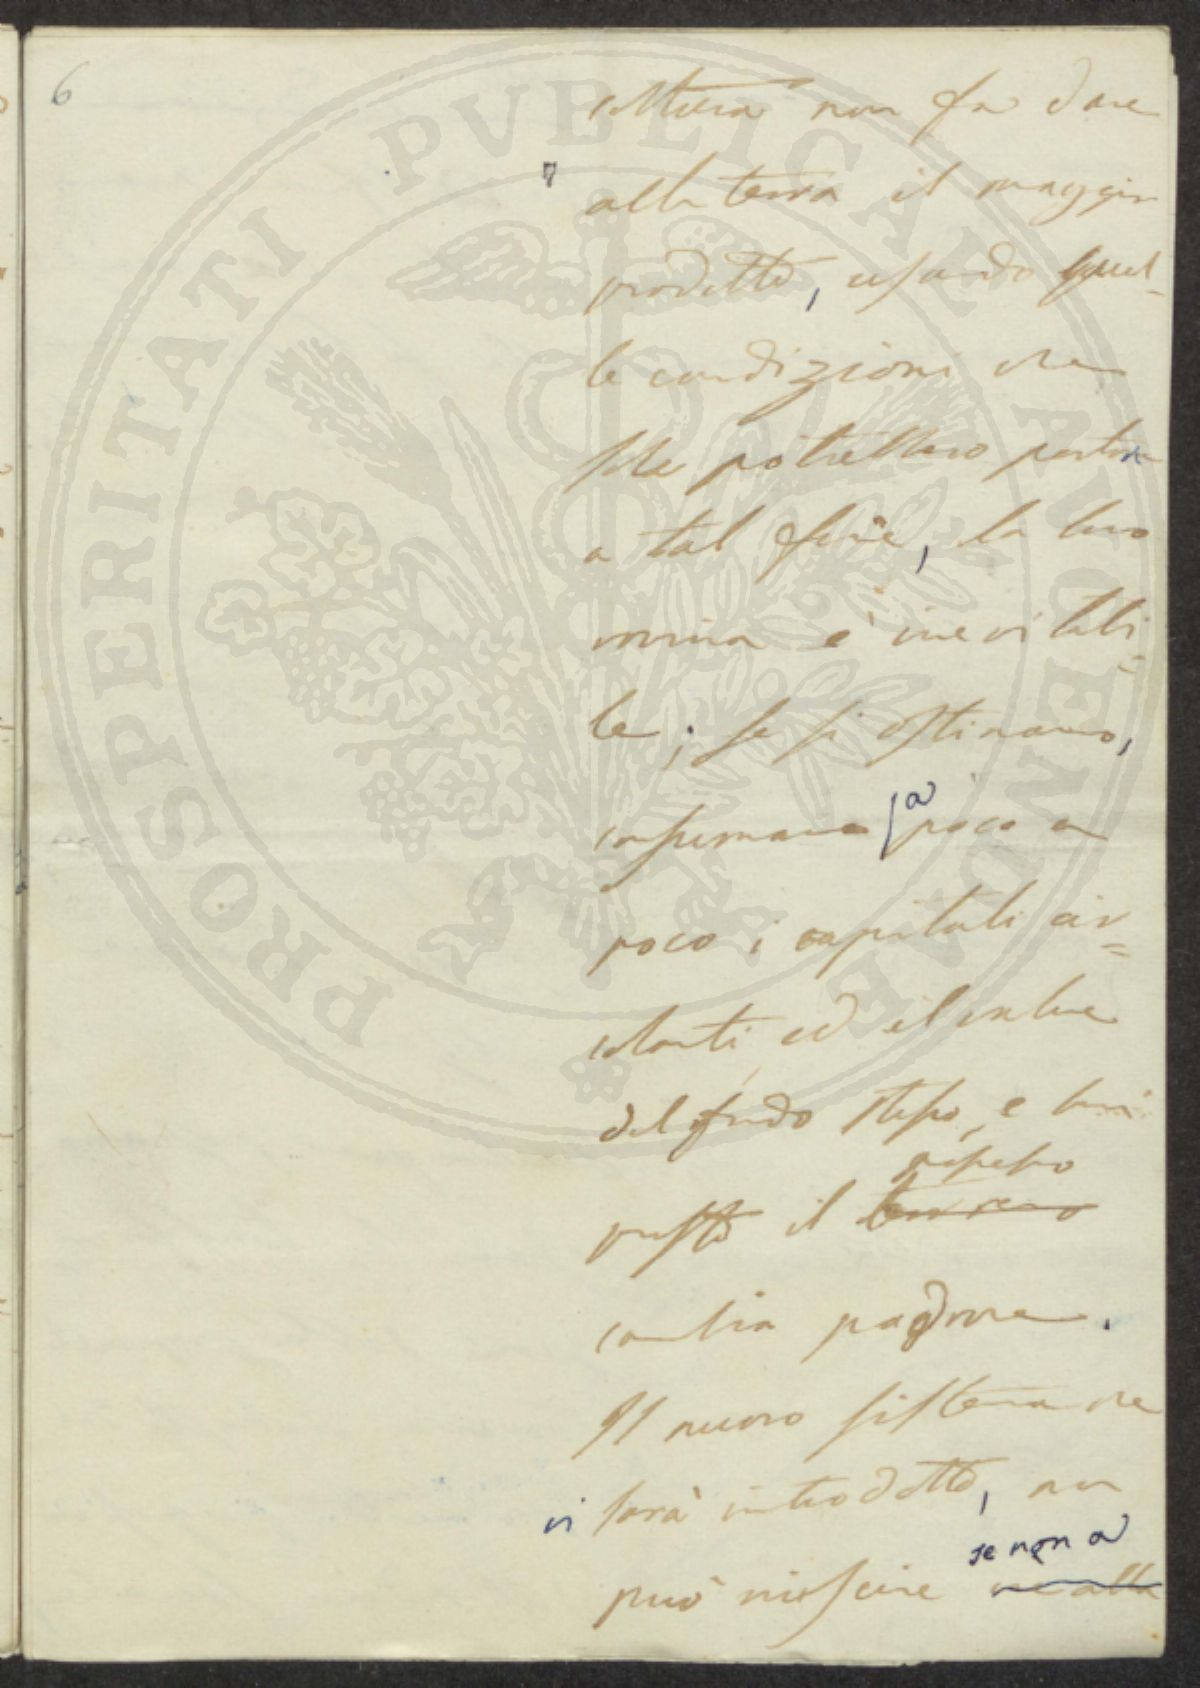 6
coltura non fa dare
alla terra il maggior
prodotto, usando quel-
le condizioni che
sole potrebbero portar
a tal fine, la loro
rovina è inevitabi=
le; se si ostinano,
consumano a poco a
poco i capitali cir=
colanti ed il valore
del fondo stesso, e ben
presto il terreno
possesso
cambia padrone.
Il nuovo sistema che
vi sarà introdotto, non
può riuscire che alla
se non a
PROSPERITATI PVBLICAE AVGENDAE